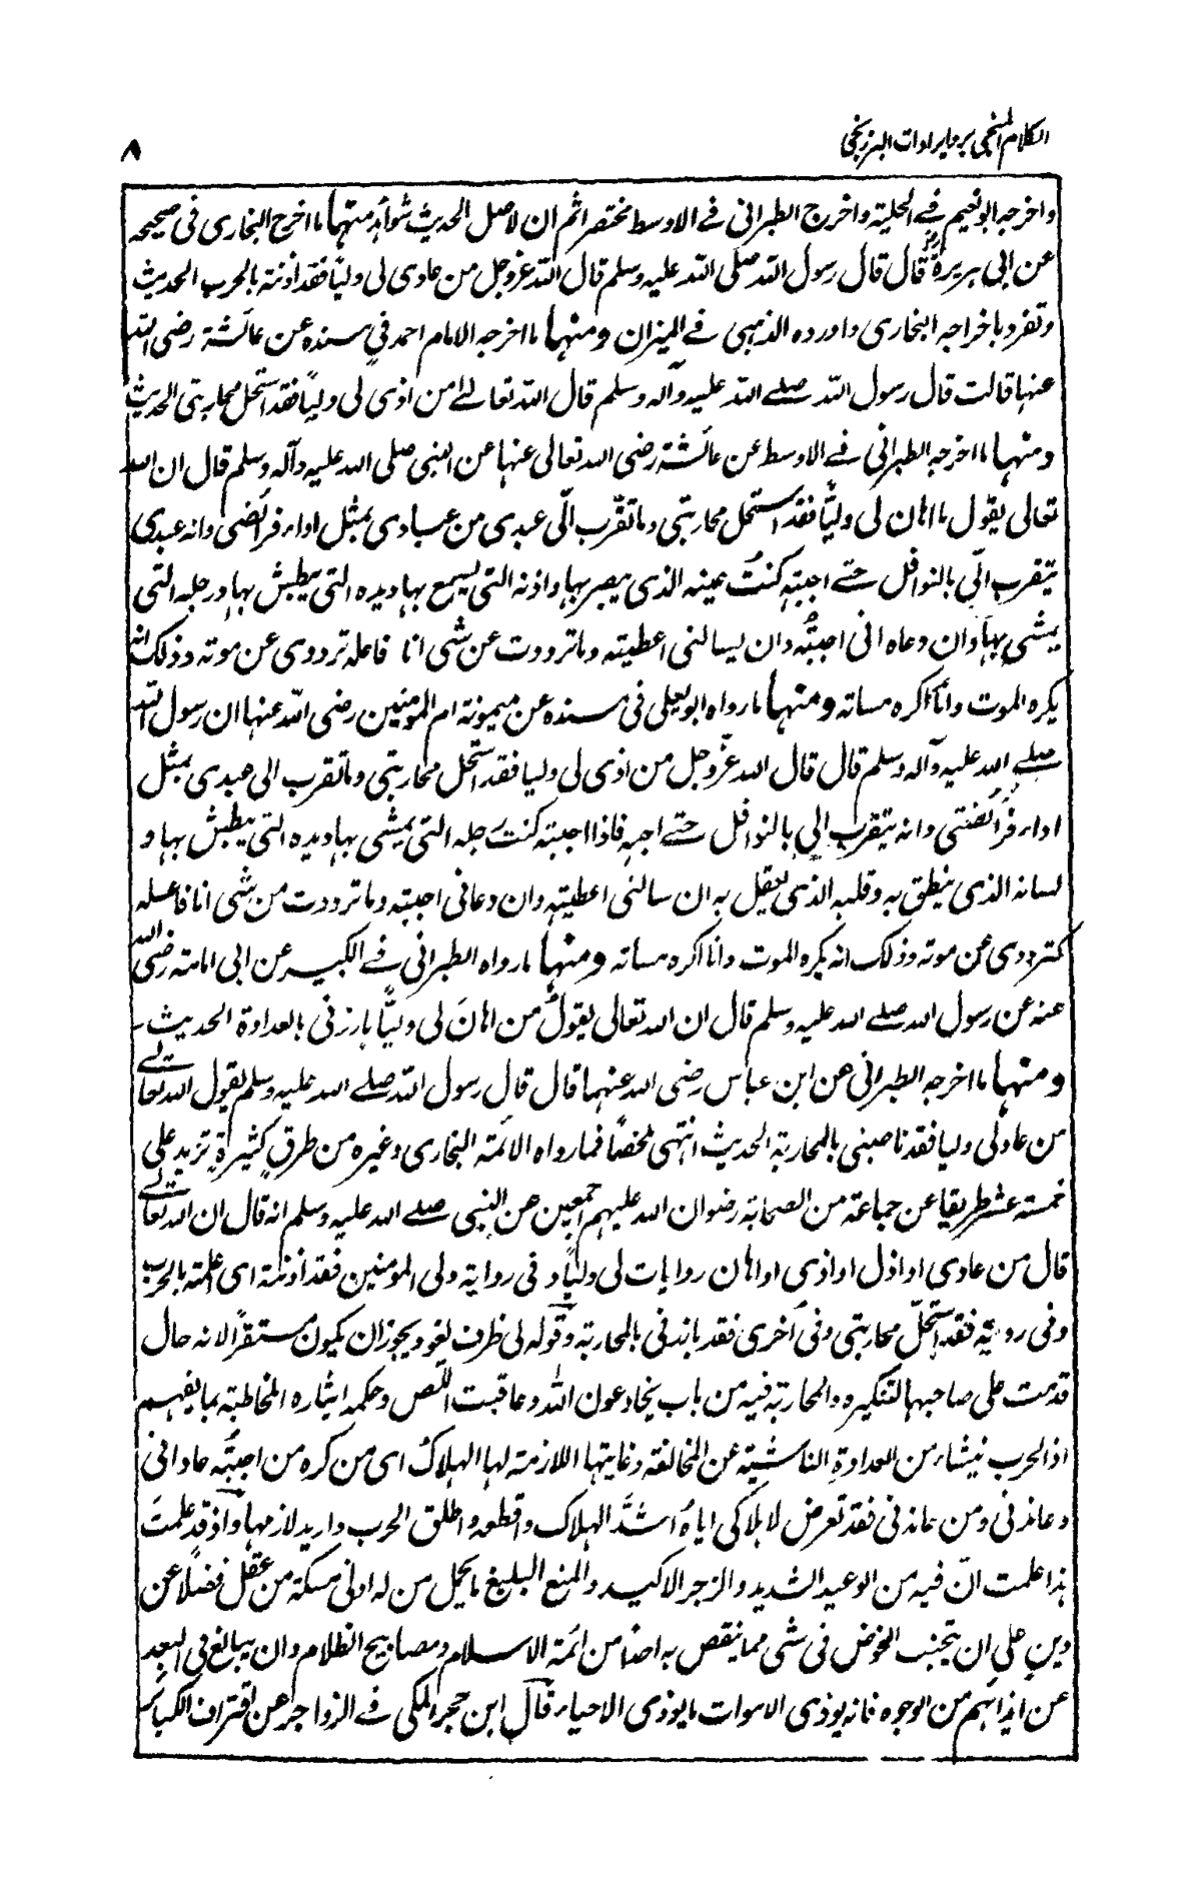 الكلام المنجي برد ايرادات البرزنجي
٨
واخرجه ابو نعيم في الحلية واخرج الطبراني في الاوسط مختصرا ثم ان لاصل الحديث شواهد منها ما اخرج البخاري في صحيحه
عن ابي هريرة رض قال قال رسول الله صلى الله عليه وسلم قال الله عز وجل من عادى لي وليا فقد اذنته بالحرب الحديث
وتفرد باخراجه البخاري واورده الذهبي في الميزان ومنها ما اخرجه الامام احمد في مسنده عن عائشة رضى الله
عنها قالت قال رسول الله صلى الله عليه وآله وسلم قال الله تعالى من اذى لي وليا فقد استحل محاربتي الحديث
ومنها ما اخرجه الطبراني في الاوسط عن عائشة رضى الله تعالى عنها عن النبي صلى الله عليه وآله وسلم قال ان الله
تعالى يقول ما اهان لي وليا فقد استحل محاربتي وما تقرب الي عبدي من عبادي بمثل اداء فرائضي وانه عبدي
يتقرب الي بالنوافل حتى احبته كنت عينه الذي يبصر بها واذنه التي يسمع بها ويده التي يبطش بها ورجله التي
يمشي بها وان دعاه اني اجبته وان يسالني اعطيته وما ترددت عن شئ انا فاعله ترددي عن موته وذلك انه
يكره الموت وانا اكره مساته ومنها ما رواه ابو يعلى في مسنده عن ميمونة ام المومنين رضى الله عنها ان رسول الله
صلى الله عليه وآله وسلم قال قال الله عز وجل من اذى لي وليا فقد استحل محاربتي وما تقرب الى عبدي بمثل
اداء فرائضتي وانه يتقرب الي بالنوافل حتى احبه فاذا احبته كنت رجله التي يمشي بها ويده التي يبطش بها و
لسانه الذي ينطق به وقلبه الذي يعقل به ان سالني اعطيته وان دعاني اجبته وما ترددت من شئ انا فاعله
كترددي عن موته وذلك انه يكره الموت وانا اكره مساته ومنها ما رواه الطبراني في الكبير عن ابي امامة رضى الله
عنه عن رسول الله صلى الله عليه وسلم قال ان الله تعالى يقول من اهان لي وليا بارزني بالعداوة الحديث
ومنها ما اخرجه الطبراني عن ابن عباس رضى الله عنهما قال قال رسول الله صلى الله عليه وسلم يقول الله تعالى
من عاد لي وليا فقد ناصبني بالمحاربة الحديث انتهى ملخصا فما رواه الائمة البخاري وغيره من طرق كثيرة تزيد على
خمسة عشر طريقا عن جماعة من الصحابة رضوان الله عليهم اجمعين عن النبي صلى الله عليه وسلم انه قال ان الله تعالى
قال من عادى او اذل او اذى او اهان روايات لي وليا وفي رواية ولي المومنين فقد اذنته اى اعلمته بالحرب
وفي رواية فقد استحل محاربتي وفي اخرى فقد بارزني بالمحاربة وقوله لي ظرف لغو ويجوز ان يكون مستقرا لانه حال
قدمت على صاحبها لتنكيره والمحاربة فيه من باب يخادعون الله وعاقبت اللص وحكمة ايثاره المخاطبة بما يفهم
اذ الحرب ينشاء من العداوة الناشية عن المخالفة وغايتها اللازمة لها الهلاك اى من كره من احبته عاداني
وعاندني ومن عاندني فقد تعرض لاهلاكي اياه اشد الهلاك واقطعه واطلق الحرب واريد لازمها واذ قد علمت
هذا علمت ان فيه من الوعيد الشديد والزجر الاكيد والمنع البليغ ما يحمل من له ادنى مسكة من عقل فضلا عن
دين على ان يتجنب الخوض في شئ مما ينقص به احدا من ائمة الاسلام ومصابيح الظلام وان يبالغ في البعد
عن ايذائهم من الوجوه فانه يوذى الاموات ما يوذى الاحياء قال ابن حجر المكي في الزواجر عن اقتراف الكبائر